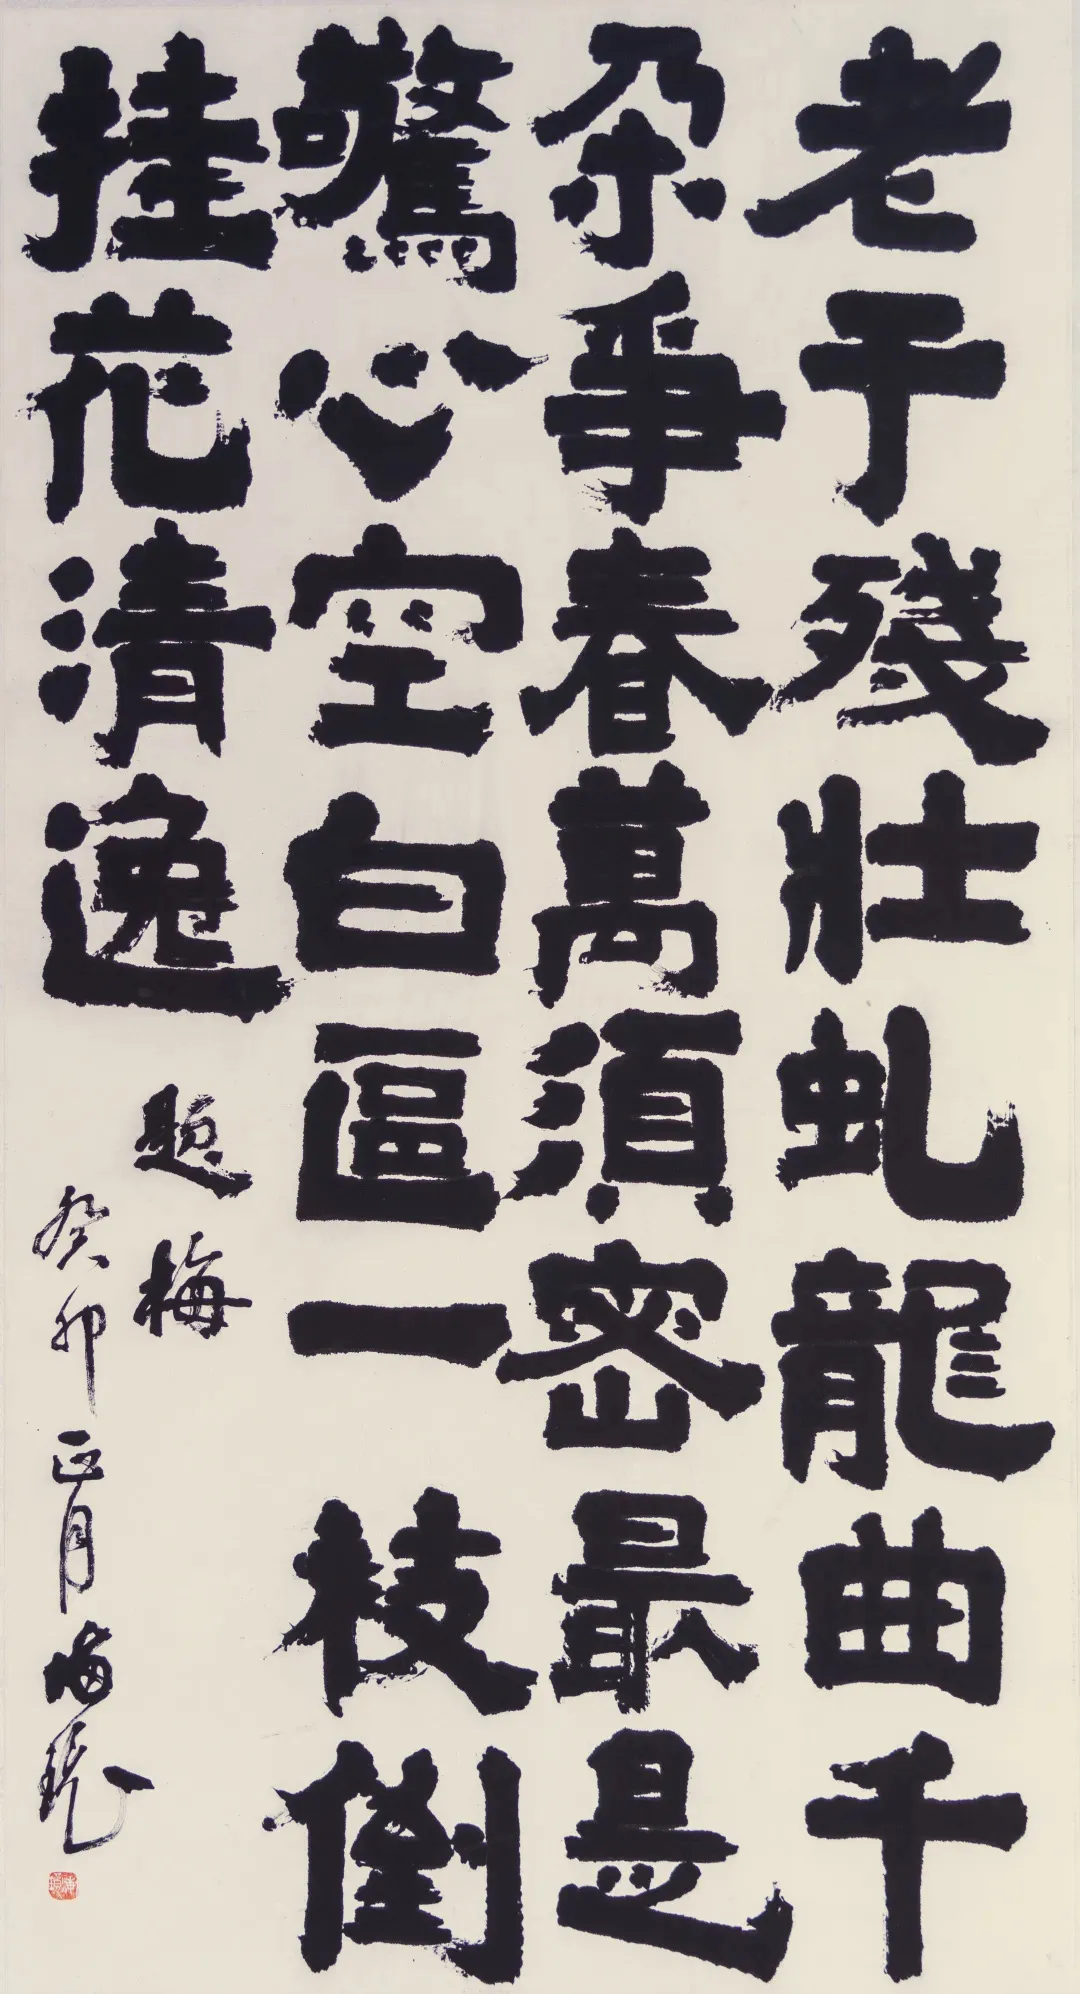 老干殘壯虬龍曲千
朶爭春萬須密最是
驚心空白區一枝倒
挂花清逸
題梅
癸卯正月